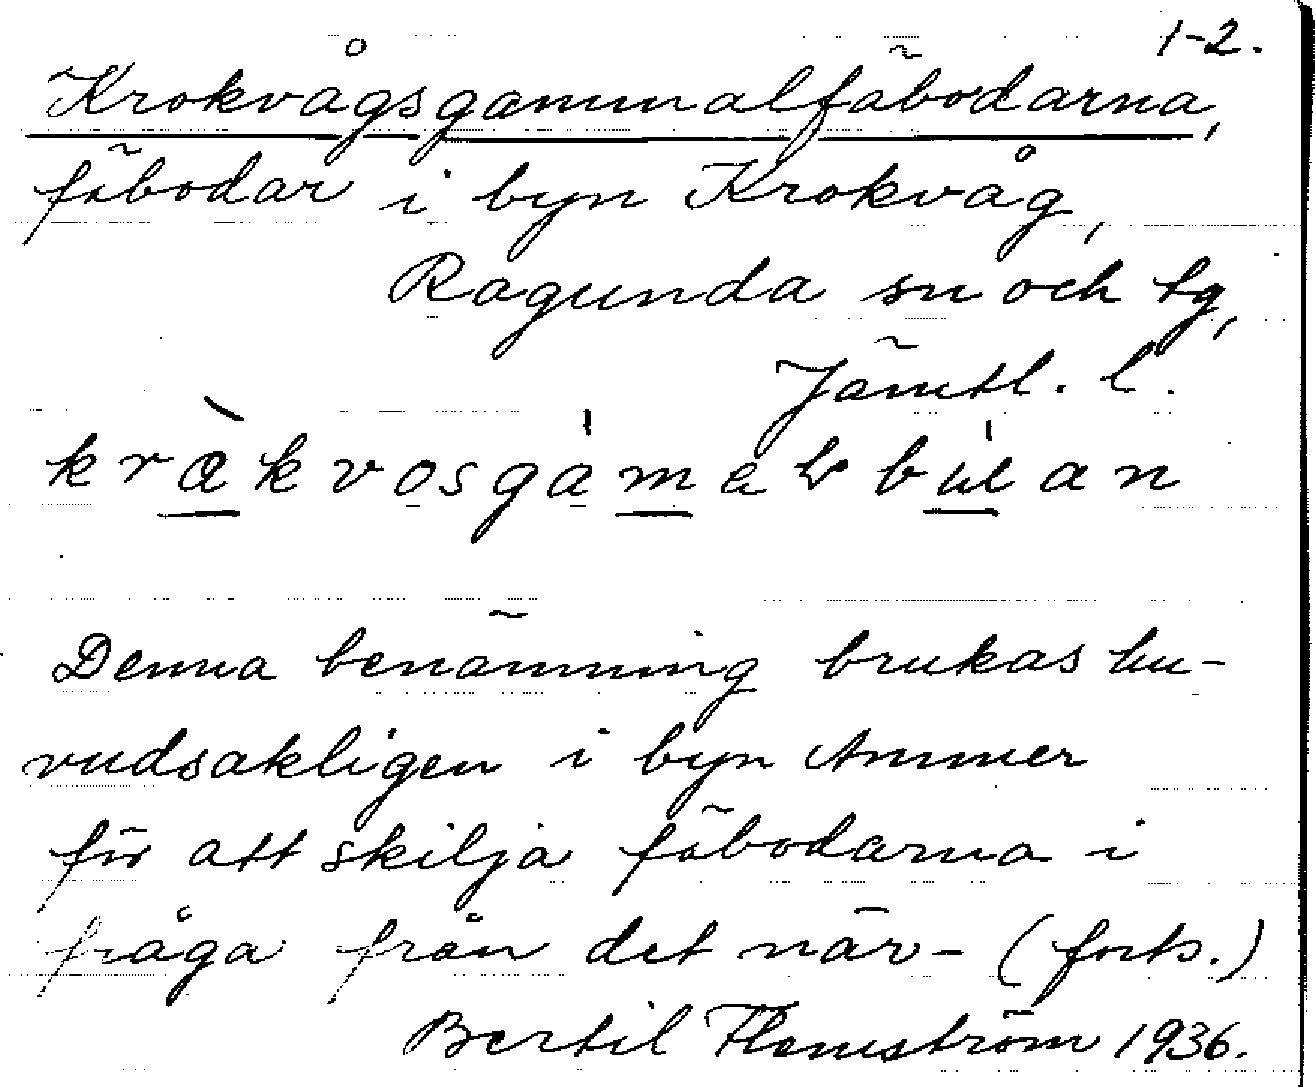 1-2.
Krokvågsgammalfäbodarna,
fäbodar i byn Krokvåg,
Ragunda sn och tg,
Jämtl. l.
Denna benämning brukas hu-
vudsakligen i byn Ammer
för att skilja fäbodarna i
fråga från det när- (forts.)
Bertil Flemström 1936.